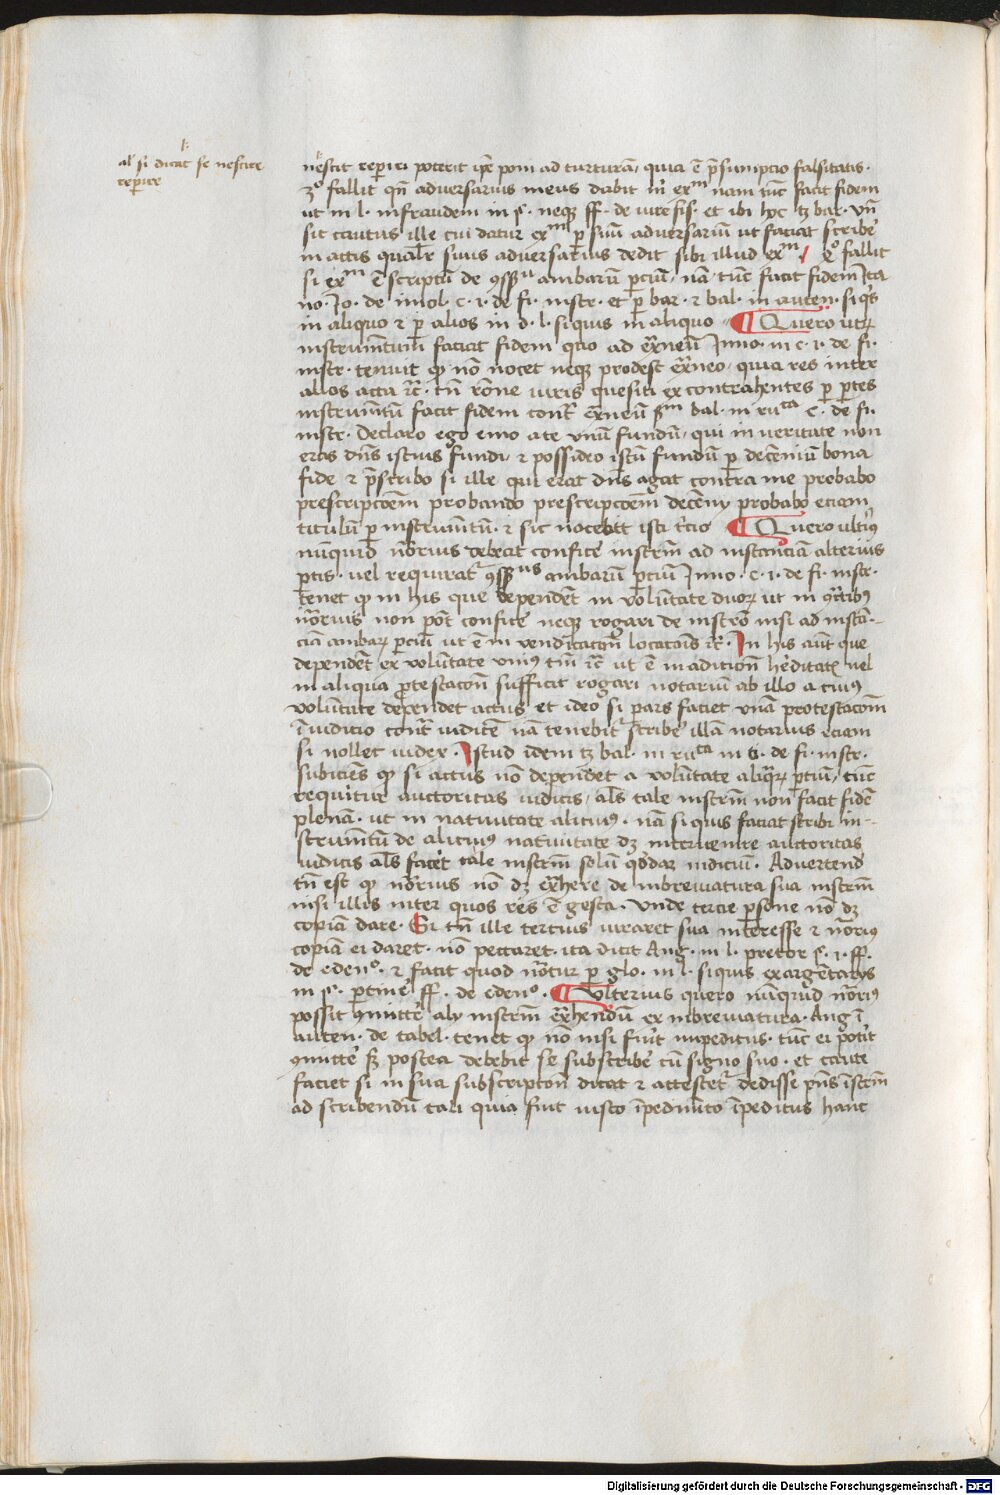 al' si dicat se nescire
reperire
nescit reperiri poterit ipse poni ad turturam, quia ē p̄sumptio falsitatis.
3º fallit qn̄ adversarius meus dabit m̄ exᵐ nam tūc facit fidem
ut in l. in fraudem in §. neqȝ ff. de iure fis. et ibi hoc tȝ bar. Vn̄
sit cautus ille cui datur exᵐ ꝑ suū adversariū ut faciat scribe'
in actis qualr̄ suus adversarius dedit sibi illud exᵐ. 4º fallit
si exᵐ ē scriptū de ꝯsȝᵘ ambarū ꝑciū, nā tūc facit fidem Ita
no. Jo. de imol. c. i. de fi. instr. et ꝑ bar. ⁊ bal. in auten. si q̄s
in aliquo ⁊ ꝑ alios in d. l. si quis in aliquo ¶ Quero utꝝ
instrumētum faciat fidem quo ad ex̄neū Inno. in c. i. de fi.
instr. tenuit qꝫ nō nocet neqȝ prodest ex̄neo, quia res inter
alios acta ⁊c̄. tn̄ rōne iuris quesiti ex contrahentes ꝑ ꝑtes
instrumētū facit fidem contˢ ex̄neū sᵐ bal. in ruᶜᵃ c. de fi.
instr. Declaro ego emo a te vnū fundū, qui in veritate non
eras dn̄s istius fundi, ⁊ possideo istū fundū ꝑ decēniū bona
fide ⁊ p̄scribo si ille qui erat dn̄s agat contra me probabo
prescripcōem probando prescripcōem decēny probabo eciam
titulū ꝑ instrumētū. ⁊ sic nocebit isti t'cio ¶ Quero ultiꝰ
nunquid nōrius debeat confice' instrm̄ ad instanciam alterius
ꝑtis. uel requirat' ꝯsȝᵘˢ ambarū ꝑciū Inno. c. i. de fi. instr.
tenet qꝫ in his que dependēt in volūtate duoꝝ ut in ꝯtctibꝰ
nōrius non pōt confice' neqȝ rogari de instro nisi ad instā-
ciā ambaꝝ ꝑciū ut ē in vendicacōn locacōis ⁊c̄. In his aūt que
dependēt ex volūtate vniꝰ tm̄ ⁊c̄ ut ē in aditiōn h'ditatꝭ uel
in aliqua ꝓtestacōn sufficit rogari notariū ab illo a cuiꝰ
volūtate dependet actus et ideo si pars faciet vnā protestacōm
ī iudicio contˢ iudicē nā tenebit' scribe' illā notarius eciam
si nollet iudex. Istud idem tȝ bal. in ruᶜᵃ in c. de fi. instr.
subiciēs qꝫ si actus nō dependet a volūtate aliqꝝ ꝑciū, tūc
requiritur auctoritas iudicis, als̄ tale instrm̄ non facit fidē
plenā. ut in nativitate alicuiꝰ. nā si quis faciat scribi in-
strumētū de alicuiꝰ nativitate dȝ intervenire auctoritas
iudicis als̄ facit tale instrm̄ solū qōdam indiciū. Advertend'
tn̄ est qꝫ nōrius nō dȝ ex̄here de inbreviatura sua instrm̄
nisi illis inter quos res ē gesta. Vnde tercie ꝑsone nō dȝ
copiā dare. Si tn̄ ille tertius iuraret sua interesse ⁊ nōriꝰ
copiā ei daret. nō peccaret. ita dicit Ang. in l. pretor §. i. ff.
de edenº. ⁊ facit quod nōtur ꝑ glo. in l. si quis ex argētarys
in §. ꝑtine' ff. de edenº. ¶ Ulterius quero nūquid nōriꝰ
possit ꝯmitte' aly instrm̄ ex̄hendū ex inbreviatura. Ang ī
auten. de tabel. tenet qꝫ nō nisi fu'it impeditus. tūc ei pot'it
ꝯmitte' sȝ postea debebit se subscribe' cū signo suo. et caute
faciet si in sua subscripcōn dicat ⁊ attestet' dedisse p̄ns īstrm̄
ad scribendū tali quia fuit iusto īpedimēto īpeditus hanc
Digitalisierung gefördert durch die Deutsche Forschungsgemeinschaft - DFG